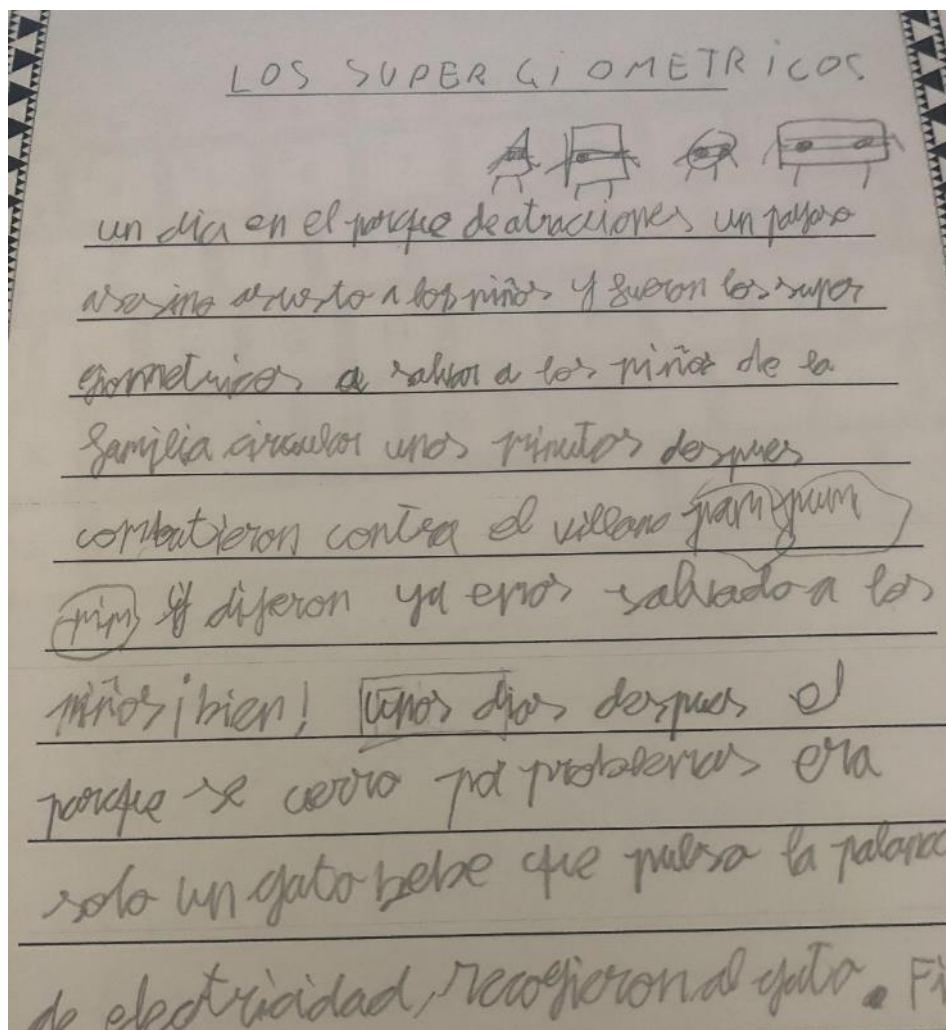 LOS SUPER GiOMETRiCOS
un dia en el parque de atracciones un payaso
asesino asusto a los niños y fueron los super
giometricos a salvar a los niños de la
familia circular unos minutos despues
combatieron contra el villano pam pum
pim y dijeron ya emos salvado a los
niños ¡bien! unos dias despues el
parque se cerro por problemas era
solo un gato bebe que pulso la palanc
de electricidad, recogieron al gato. Fi